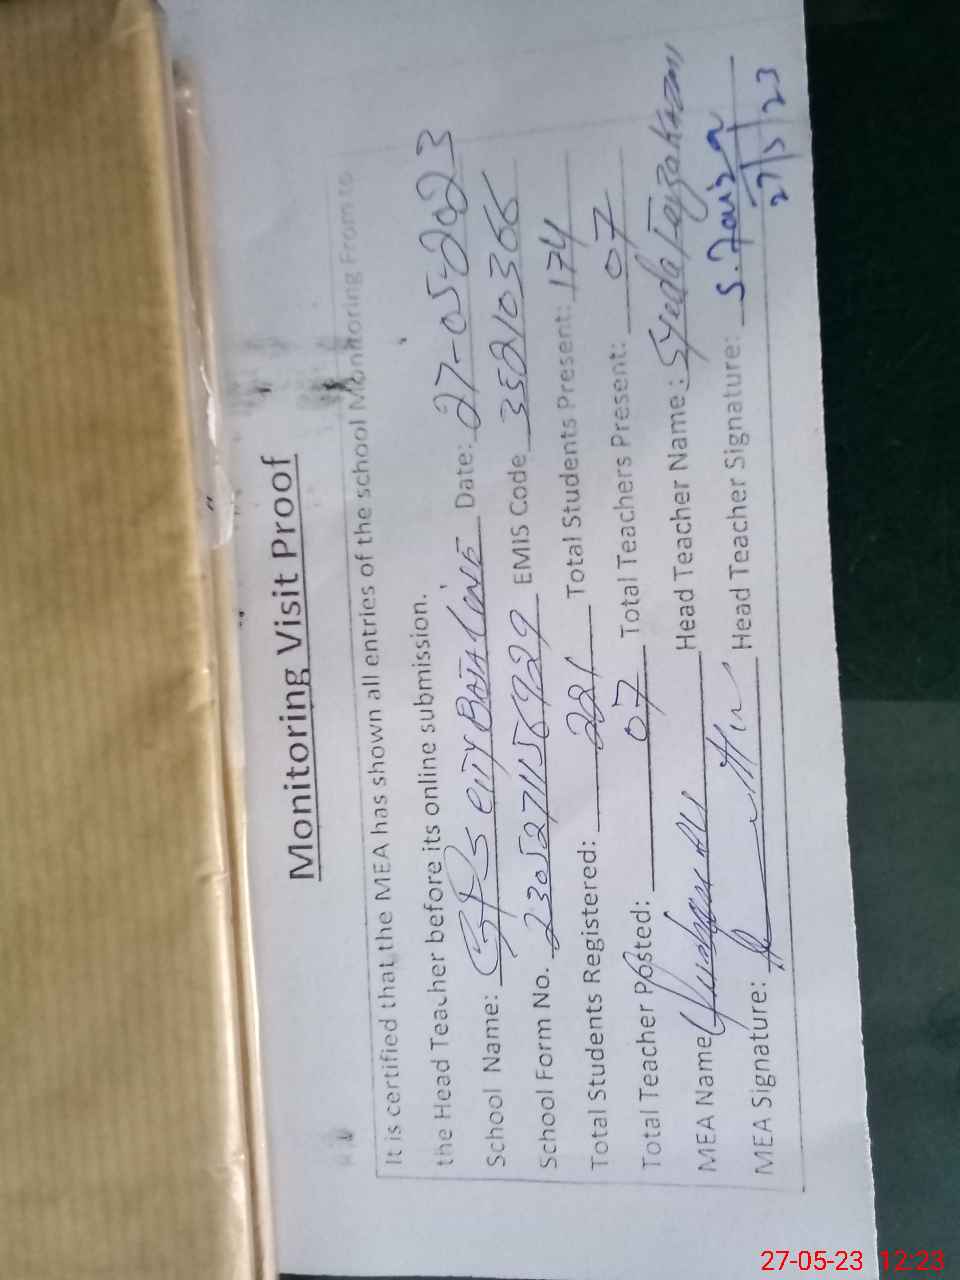 Monitoring Visit Proof
It is certified that the MEA has shown all entries of the school Monitoring From to
the Head Teacher before its online submission.
School Name: GPS CITY BAJA LINE Date: 27-05-2023
School Form No. 2305271156929 EMIS Code 35210366
Total Students Registered: 221 Total Students Present: 174
Total Teacher Posted: 07 Total Teachers Present: 07
MEA Name Ali Head Teacher Name: Syeda Faiza Kazmi
MEA Signature: Head Teacher Signature: S. Faiza
27/5/23
27-05-23 12:23